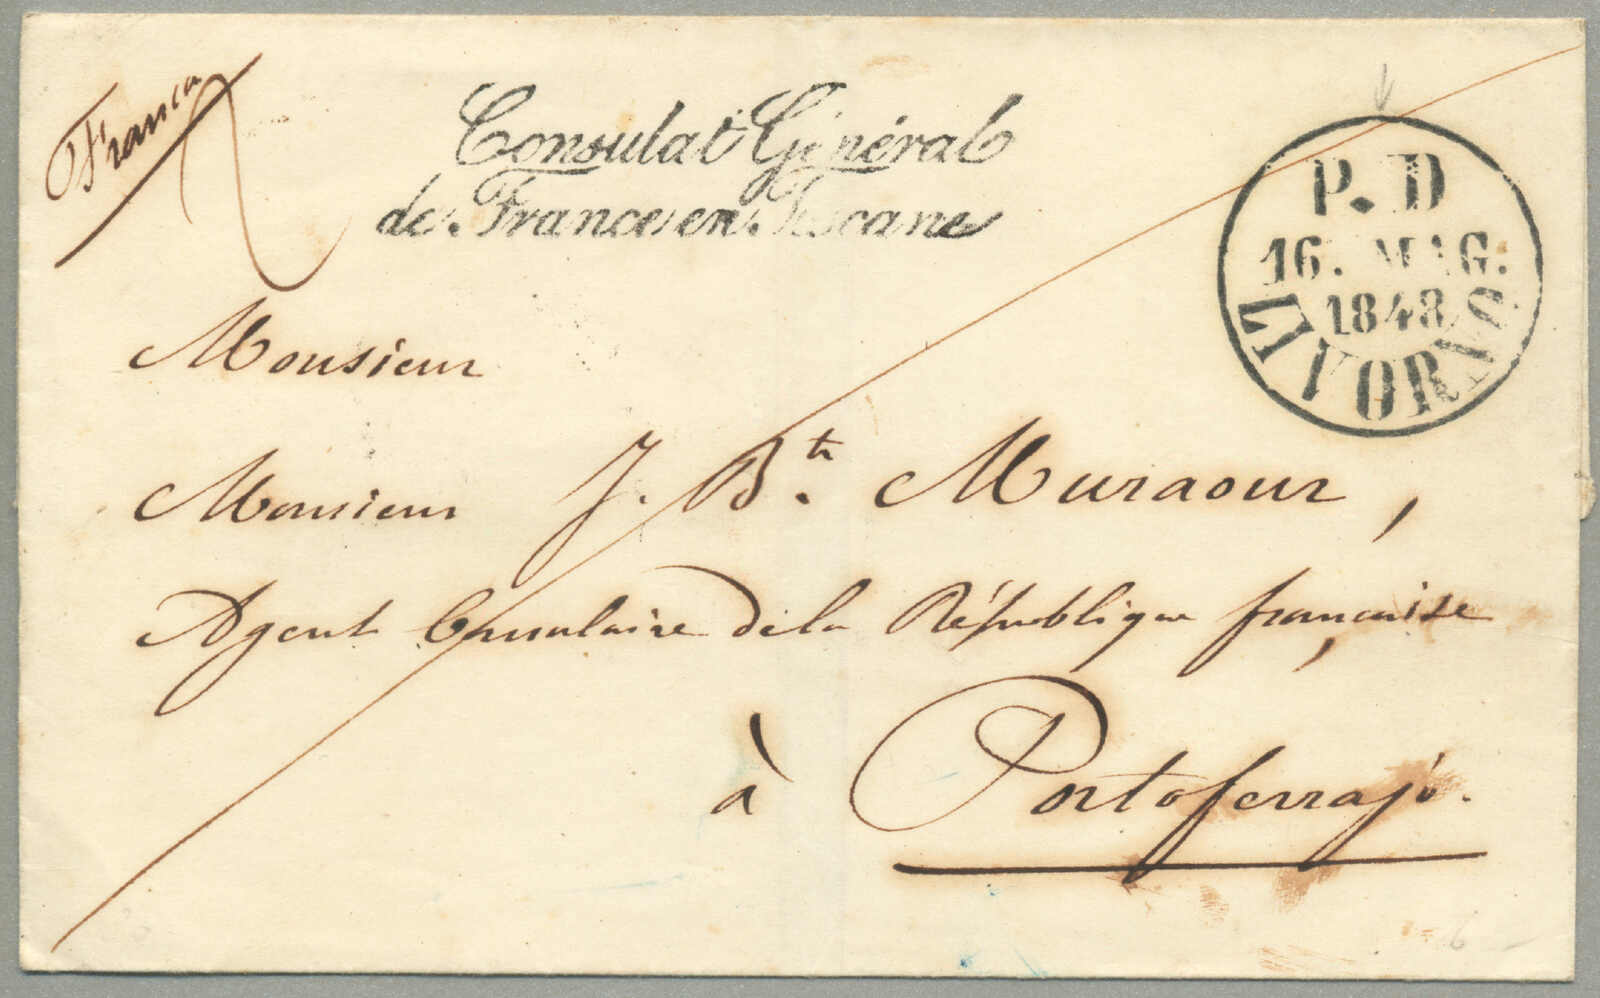 Franca
Consulat Général
de France en Toscane
P. D
16. MAG:
1848
LIVORNO
Monsieur
Monsieur J. Bte. Muraour,
Agent Consulaire de la République française,
à Portoferrajo.